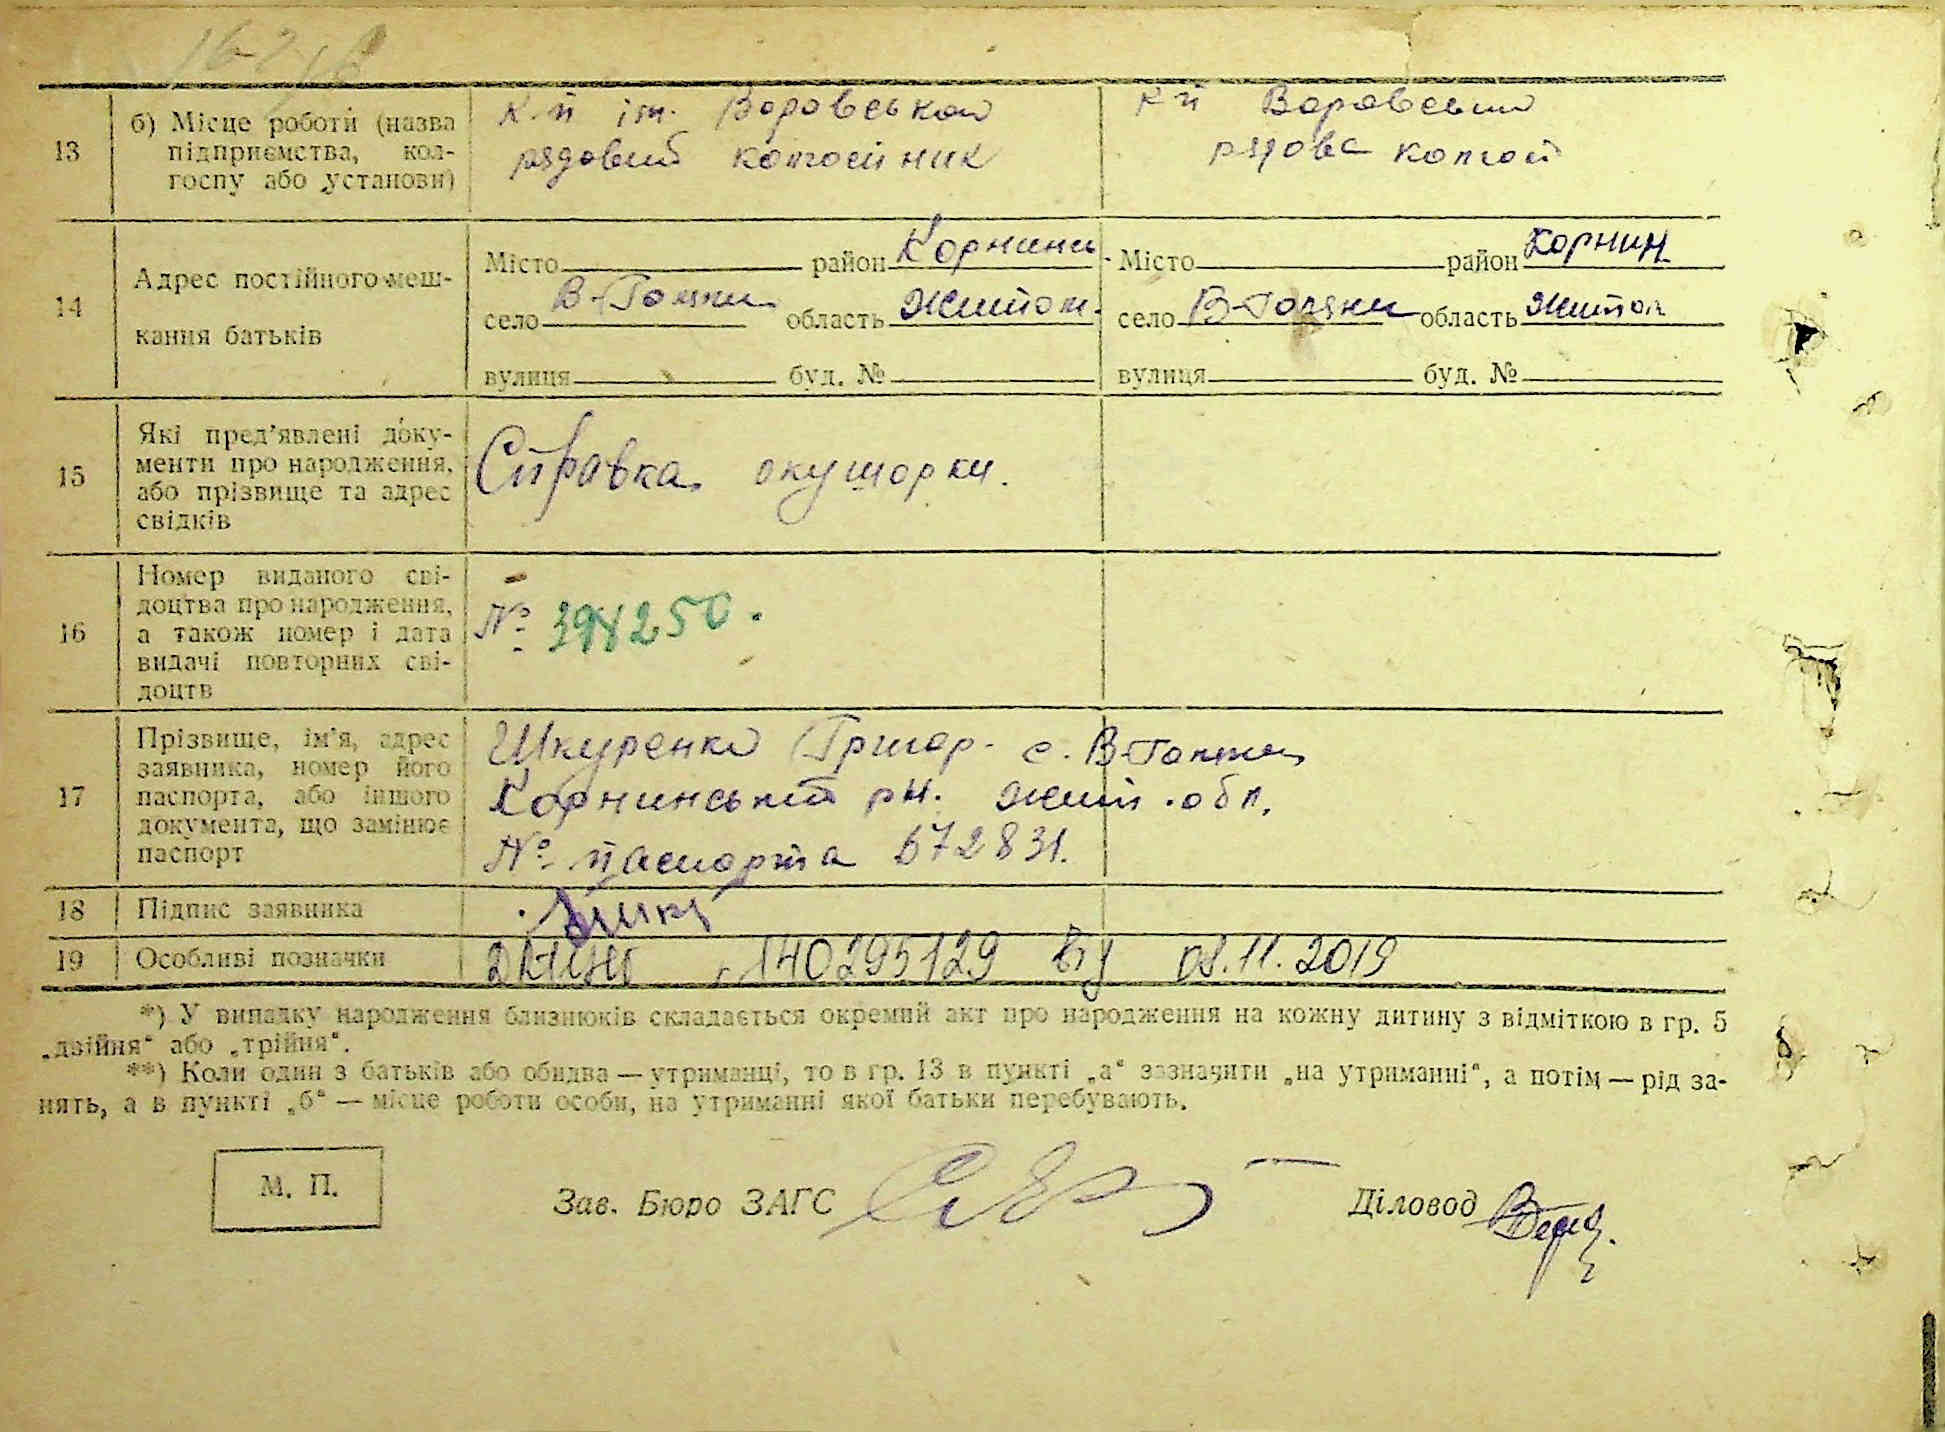 13
б) Місце роботи (назва підприємства, колгоспу або установи)
к-п ім. Воровського
рядовий колгоспник
к-п Воровський
рядова колгосп
14
Адрес постійного мешкання батьків
Місто район Корнинсь
село В-Голяки область Житом.
вулиця буд. №
Місто район Корнин
село В-Голяки область Житом
вулиця буд. №
15
Які пред'явлені документи про народження, або прізвище та адрес свідків
Справка окушорки.
16
Номер виданого свідоцтва про народження, а також номер і дата видачі повторних свідоцтв
№ 394250.
17
Прізвище, ім'я, адрес заявника, номер його паспорта, або іншого документа, що замінює паспорт
Шкуренко Григор. с. В-Голяки
Корнинський рн. Жит. обл.
№ паспорта 672831.
18
Підпис заявника
19
Особливі позначки
140295129 від 08.11.2019
*) У випадку народження близнюків складається окремий акт про народження на кожну дитину з відміткою в гр. 5
„двійня“ або „трійня“.
**) Коли один з батьків або обидва — утриманці, то в гр. 13 в пункті „а“ зазначити „на утриманні“, а потім — рід за-
нять, а в пункті „б“ — місце роботи особи, на утриманні якої батьки перебувають.
М. П.
Зав. Бюро ЗАГС
Діловод